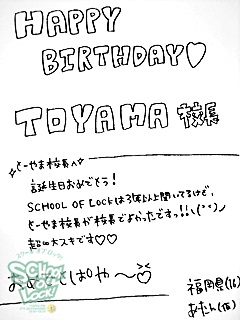 HAPPY
BIRTHDAY♡
TOYAMA 校長
とーやま校長へ
誕生日おめでとう!
SCHOOL OF LOCKは3年以上聞いてるけど、
とーやま校長が校長でよかったですっ!!\(^^)ノ
超大スキです♡♡
おめでとぱや〜
福岡県(16)
あたん(仮)
SCHOOL
OF LOCK!